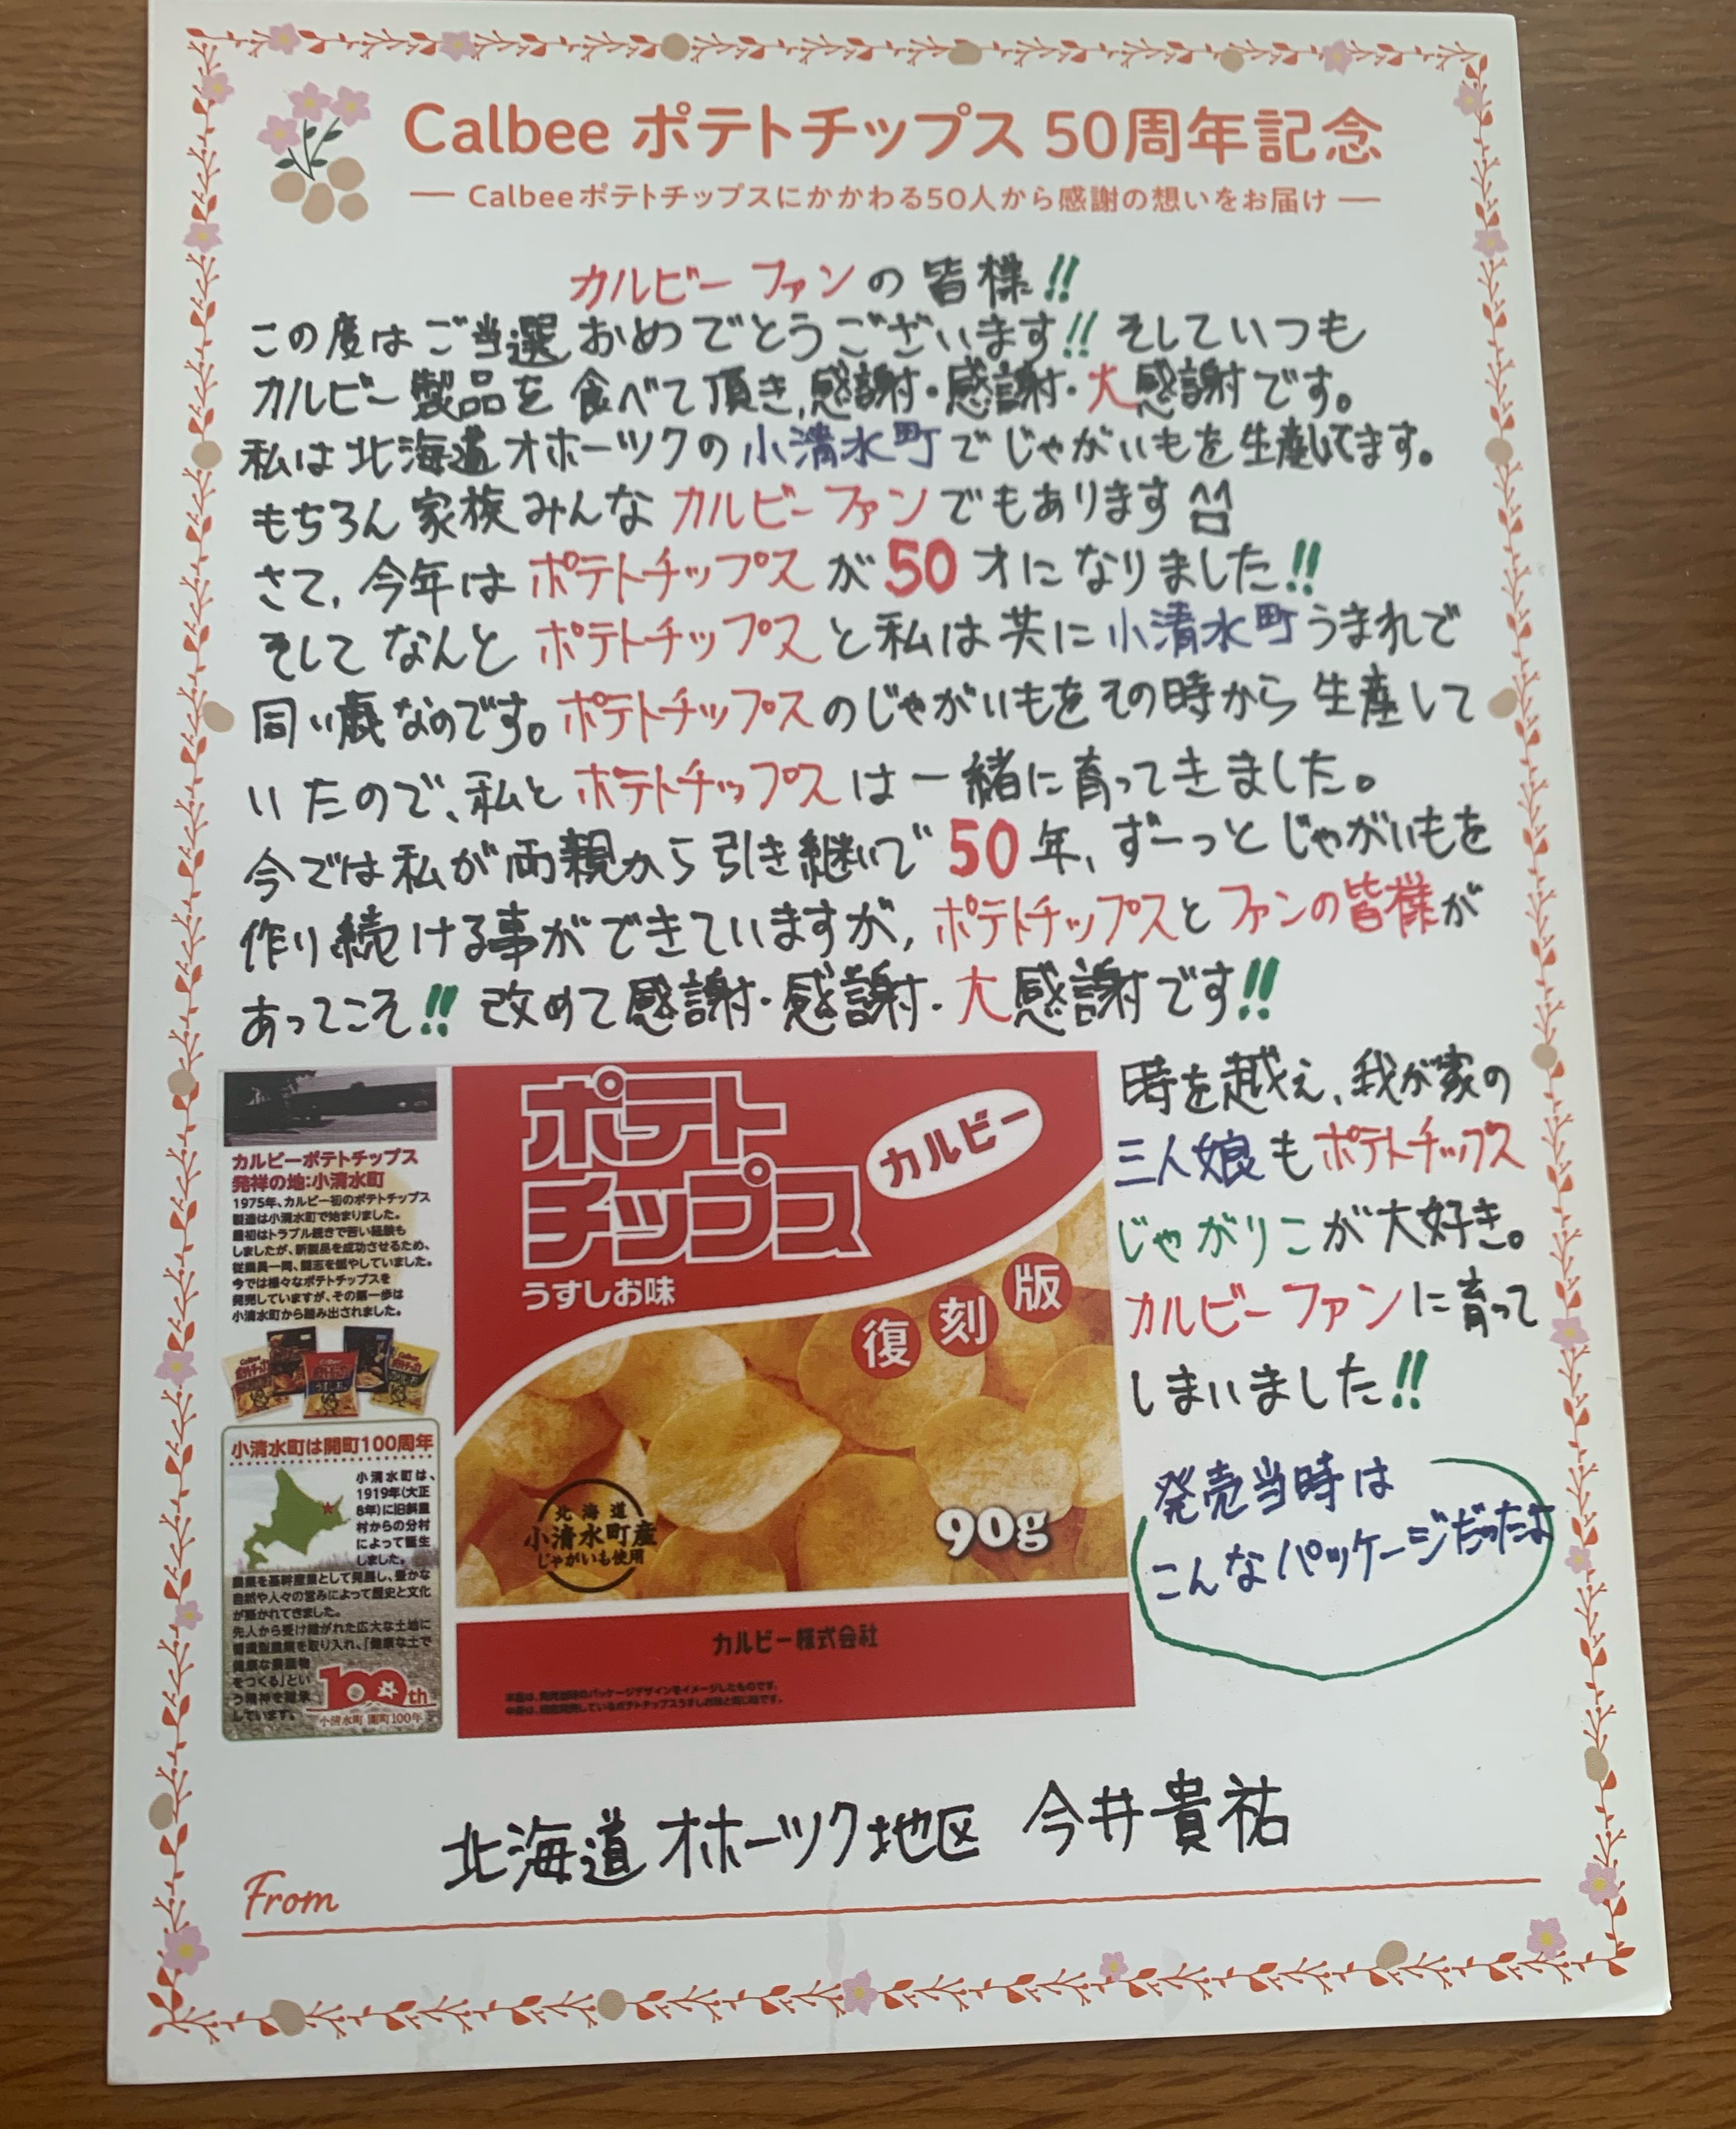 Calbee ポテトチップス 50周年記念
― Calbeeポテトチップスにかかわる50人から感謝の想いをお届け ―
カルビーファンの皆様!!
この度はご当選おめでとうございます!! そしていつも
カルビー製品を食べて頂き、感謝・感謝・大感謝です。
私は北海道オホーツクの小清水町でじゃがいもを生産してます。
もちろん家族みんなカルビーファンでもあります
さて、今年はポテトチップスが50才になりました!!
そしてなんとポテトチップスと私は共に小清水町うまれで
同い歳なのです。ポテトチップスのじゃがいもをその時から生産して
いたので、私とポテトチップスは一緒に育ってきました。
今では私が両親から引き継いで50年、ずーっとじゃがいもを
作り続ける事ができていますが、ポテトチップスとファンの皆様が
あってこそ!! 改めて感謝・感謝・大感謝です!!
カルビーポテトチップス
発祥の地:小清水町
1975年、カルビー初のポテトチップス
製造は小清水町で始まりました。
最初はトラブル続きで苦い経験も
しましたが、新製品を成功させるため、
従業員一同、闘志を燃やしていました。
今では様々なポテトチップスを
発売していますが、その第一歩は
小清水町から踏み出されました。
小清水町は開町100周年
小清水町は、
1919年(大正
8年)に旧斜里
村からの分村
によって誕生
しました。
農業を基幹産業として発展し、豊かな
自然や人々の営みによって歴史と文化
が築かれてきました。
先人から受け継がれた広大な土地に
循環型農業を取り入れ、「健康な土で
健康な農産物
をつくる」とい
う精神を継承
しています。
100th
小清水町 開町100年
ポテト
チップス
カルビー
うすしお味
復刻版
北海道
小清水町産
じゃがいも使用
90g
カルビー株式会社
本品は、発売当時のパッケージデザインをイメージしたものです。
中身は、現在発売しているポテトチップスうすしお味と同じ味です。
時を越え、我が家の
三人娘もポテトチップス
じゃがりこが大好き。
カルビーファンに育って
しまいました!!
発売当時は
こんなパッケージだったよ
From 北海道オホーツク地区 今井貴祐